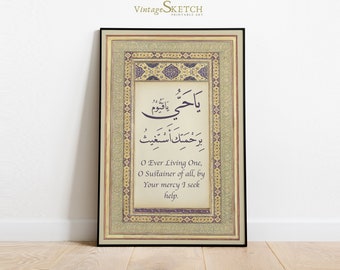 VintageSKETCH
PRINTABLE ART
يَا حَيُّ يَا قَيُّومُ
بِرَحْمَتِكَ أَسْتَغِيثُ
O Ever Living One,
O Sustainer of all, by
Your mercy I seek
help.